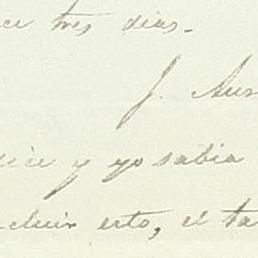 ce tres dias.
J. Aur
dice y yo sabia
cluir esto, el ta